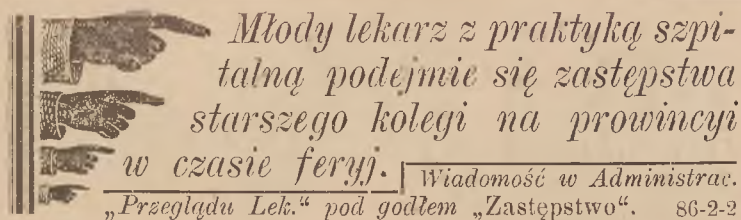 Młody lekarz z praktyką szpi-
talną podejmie się zastępstwa
starszego kolegi na prowincyi
w czasie feryj. Wiadomość w Administrac.
„Przeglądu Lek.“ pod godłem „Zastępstwo“. 86-2-2